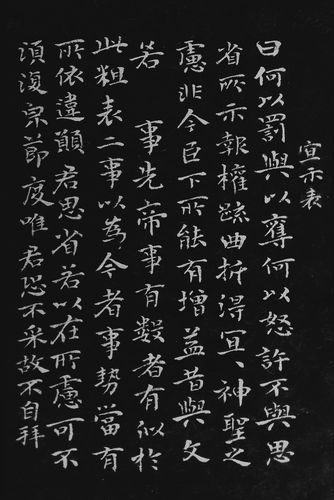 宣示表
曰何以罰與以奪何以怒許不與思
省所示報權疏曲折得宜宜神聖之
慮非今臣下所能有增益昔與文
若　事先帝事有數者有似於
此粗表二事以為今者事勢當有
所依違願君思省若以在所慮可不
須復皃節度唯君恐不采故不自拜